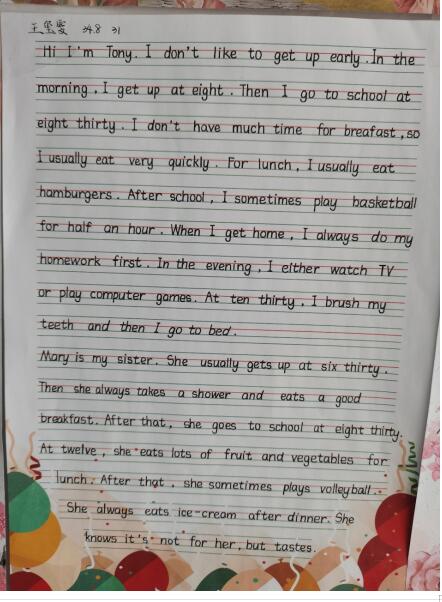 王玺雯 34.8 31
Hi I'm Tony. I don't like to get up early. In the
morning, I get up at eight. Then I go to school at
eight thirty. I don't have much time for breafast, so
I usually eat very quickly. For lunch, I usually eat
hamburgers. After school, I sometimes play basketball
for half an hour. When I get home, I always do my
homework first. In the evening, I either watch TV
or play computer games. At ten thirty, I brush my
teeth and then I go to bed.
Mary is my sister. She usually gets up at six thirty.
Then she always takes a shower and eats a good
breakfast. After that, she goes to school at eight thirty.
At twelve, she eats lots of fruit and vegetables for
lunch. After that, she sometimes plays volleyball.
She always eats ice-cream after dinner. She
knows it's not for her, but tastes.